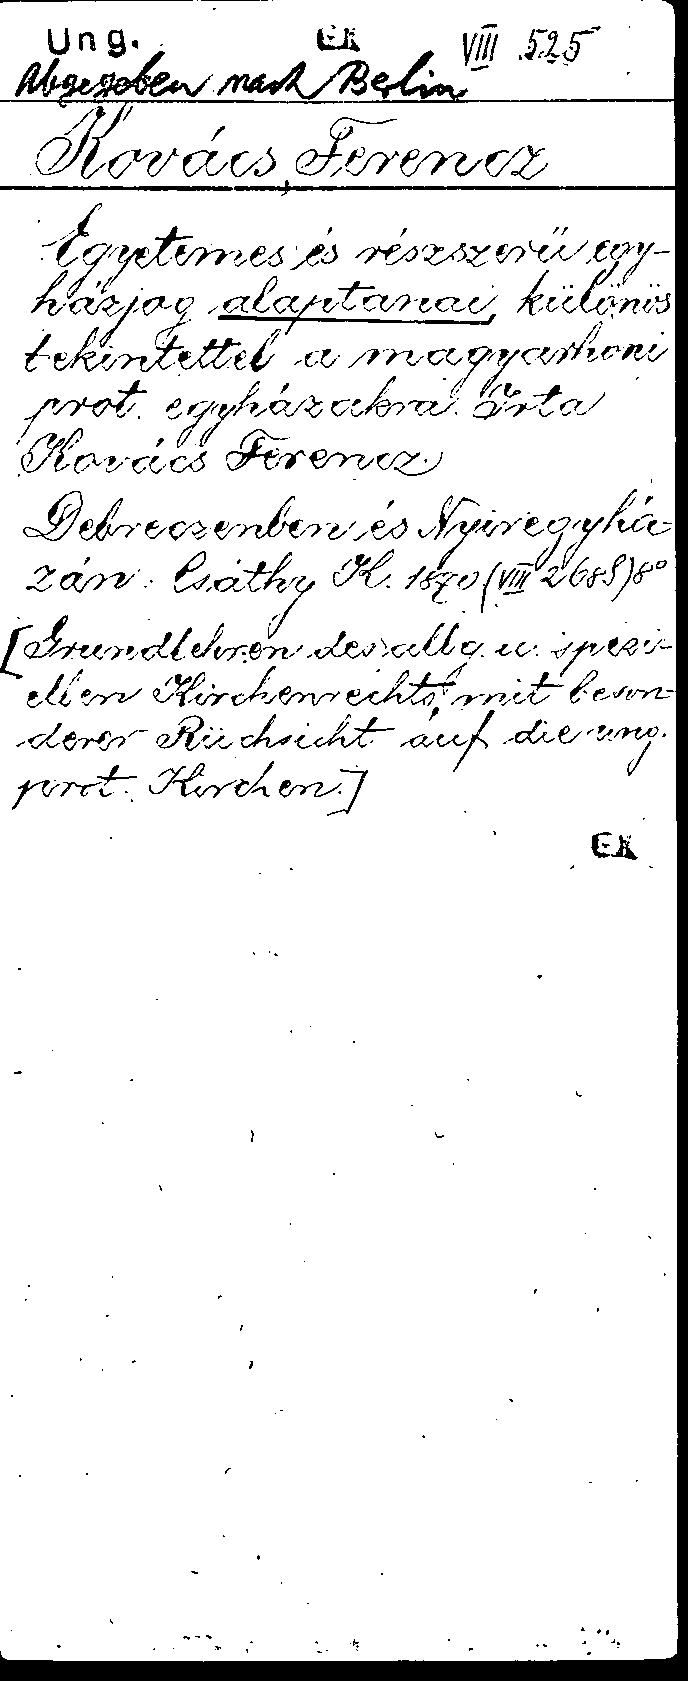 Ung. EK VIII 525
Abgegeben nach Berlin
Kovács, Ferencz
Egyetemes és részszerü egy-
házjog alaptanai, különös
tekintettel a magyarhoni
prot. egyházakra. Irta
Kovács Ferencz.
Debreczenben és Nyiregyhá-
zán. Csáthy K. 1870 (VIII 268 S) 8°
[Grundlehren des allg. u. spezi-
ellen Kirchenrechts, mit beson-
derer Rücksicht auf die ung.
prot. Kirchen.]
EK